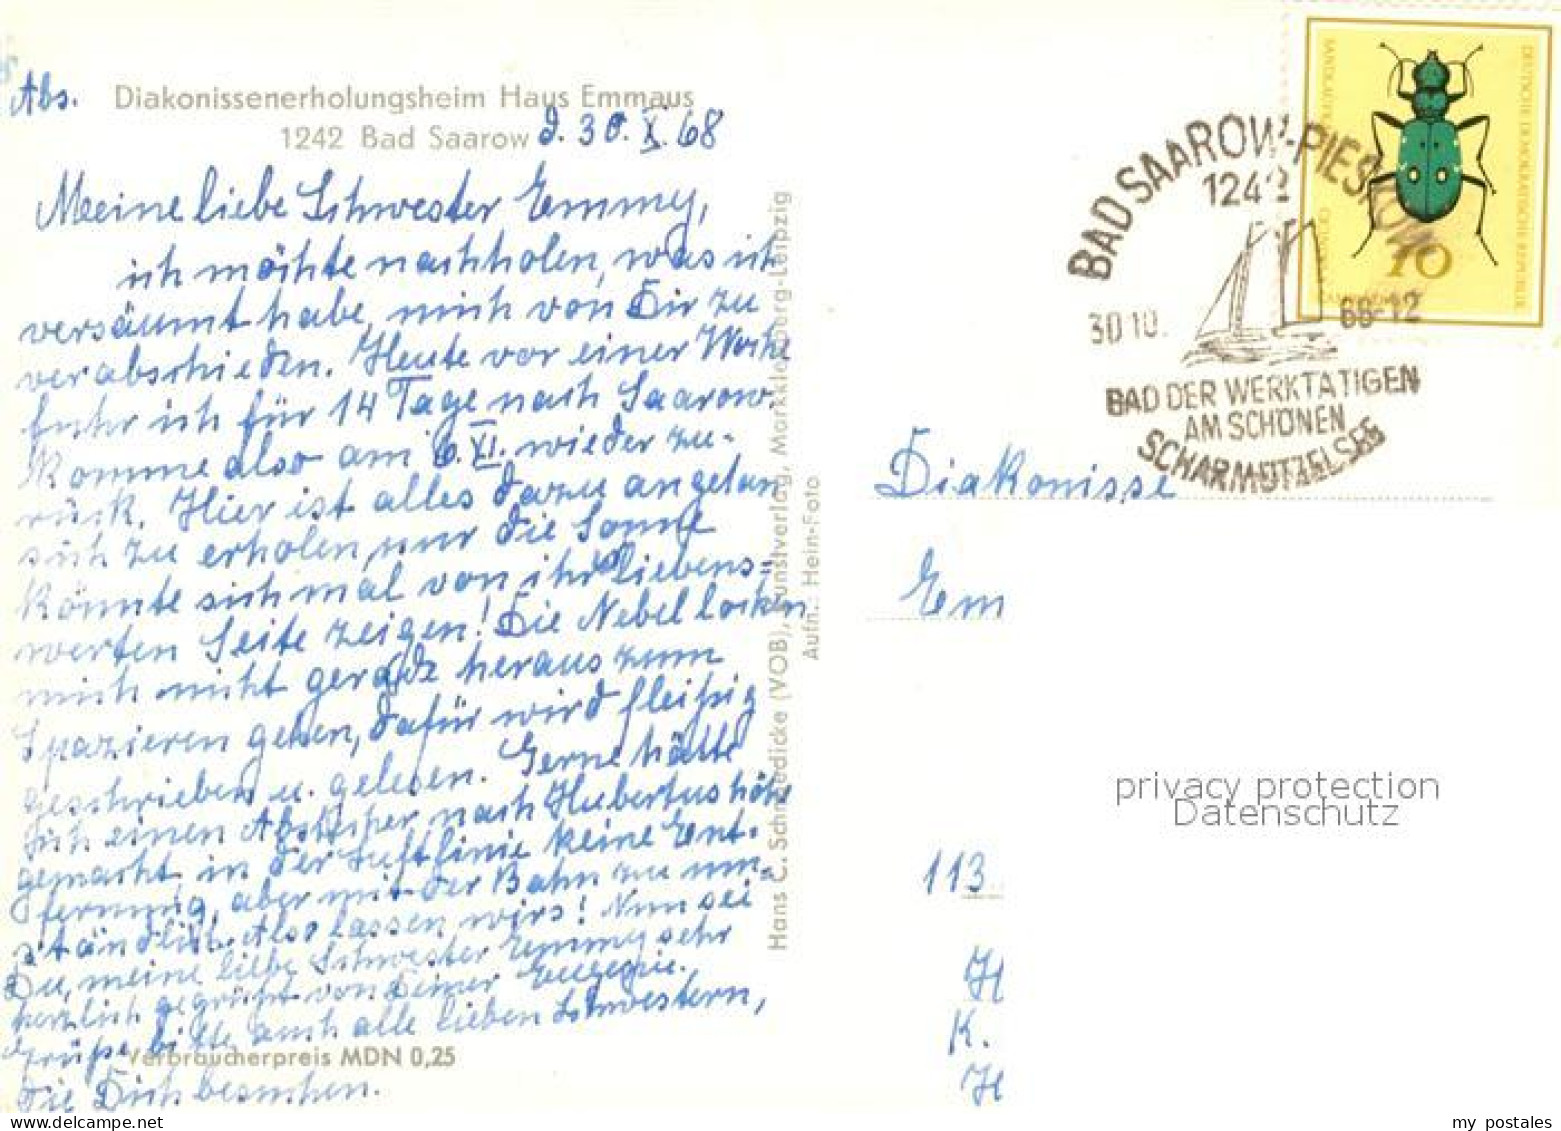 Abs. Diakonissenerholungsheim Haus Emmaus
1242 Bad Saarow d. 30. X. 68
Meine liebe Schwester Emmy,
ich möchte nachholen, was ich
versäumt habe, mich von Dir zu
verabschieden. Heute vor einer Woche
fuhr ich für 14 Tage nach Saarow.
Komme also am 6. XI. wieder zu-
rück. Hier ist alles dazu angetan
sich zu erholen, nur die Sonne
könnte sich mal von ihrer liebens=
werten Seite zeigen! Die Nebel locken
mich nicht gerade heraus zum
Spazieren gehen, dafür wird fleißig
geschrieben u. gelesen. Gerne hätte
ich einen Abstecher nach Hubertushöhe
gemacht, in der Luftlinie keine Ent-
fernung, aber mit der Bahn zu um-
ständlich. Also lassen wirs! Nun sei
Du, meine liebe Schwester Emmy sehr
herzlich gegrüßt von Deiner
Grüße bitte auch alle lieben Schwestern,
die Dich besuchen.
Verbraucherpreis MDN 0,25
Hans C. Schmiedicke (VOB), Kunstverlag, Markkleeberg-Leipzig
Aufn.: Hein-Foto
BAD SAAROW-PIESKOW
1242
30.10. 68-12
BAD DER WERKTÄTIGEN
AM SCHÖNEN
SCHARMÜTZELSEE
DEUTSCHE DEMOKRATISCHE REPUBLIK
10
Diakonisse
Em
113
H
K.
H
privacy protection
Datenschutz
my postales